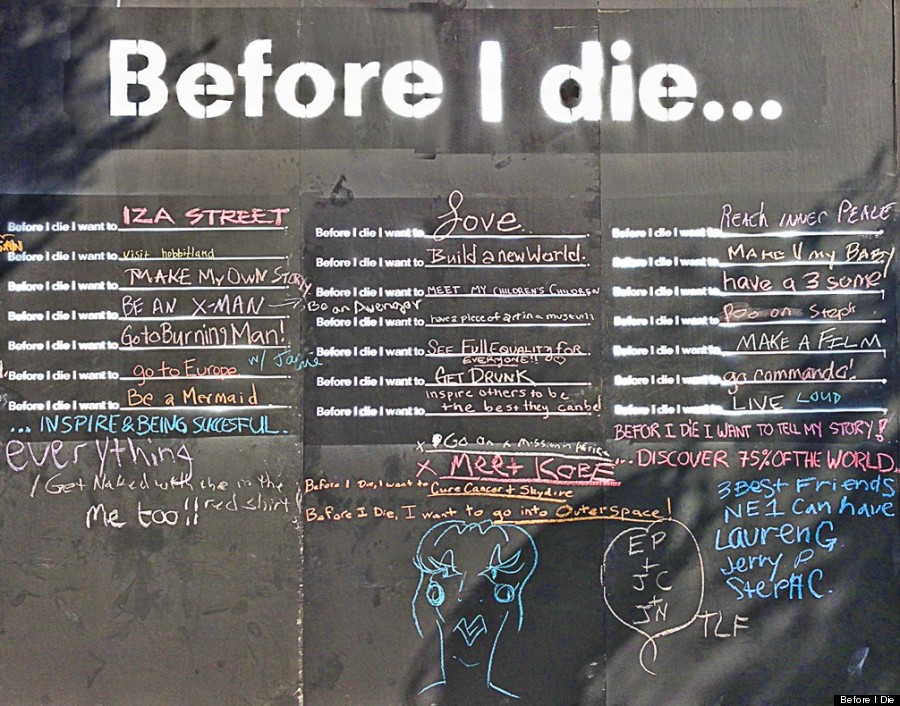 Before I die...
Before I die I want to IZA STREET
Before I die I want to visit hobbitland
Before I die I want to MAKE MY OWN STORY
Before I die I want to BE AN X-MAN →
Before I die I want to Go to Burning Man!
Before I die I want to go to Europe w/
Before I die I want to Be a Mermaid
... INSPIRE & BEING SUCCESFUL.
everything
Get Naked with the in the red shirt!
Me too!!
Before I die I want to Love
Before I die I want to Build a new World.
Before I die I want to MEET MY CHILDREN'S CHILDREN
Be an Avenger
Before I die I want to have a piece of art in a museum
Before I die I want to SEE FULL EQUALITY FOR
EVERYONE!! ♡
Before I die I want to GET DRUNK
Before I die I want to Inspire others to be
the best they can be!
X Go on a mission in Africa
X MEET KOBE
Before I Die, I want to Cure Cancer & Skydive
Before I Die, I want to go into Outerspace!
Before I die I want to REACH INNER PEACE
Before I die I want to MAKE U MY BABY
Before I die I want to have a 3 some
Before I die I want to Poo on Steph
Before I die I want to MAKE A FILM
Before I die I want to go commando!
Before I die I want to LIVE LOUD
BEFOR I DIE I WANT TO TELL MY STORY!
...DISCOVER 75% OF THE WORLD..
3 Best Friends
NE1 Can have
Lauren G.
Jerry P
Steph C.
EP
+
JC
+
JN
TLF
Before I Die